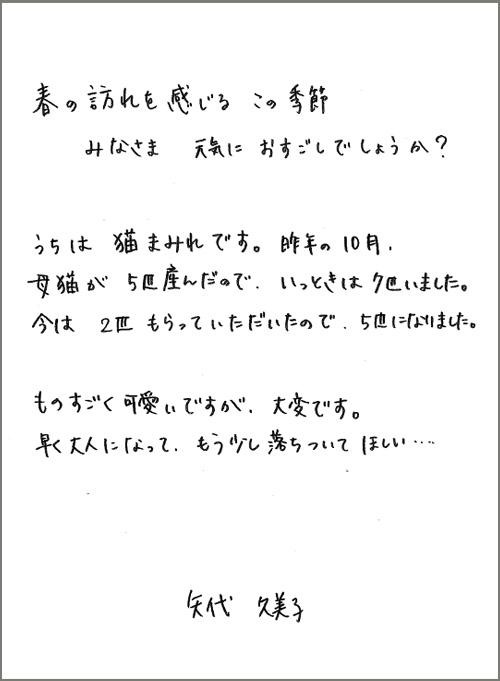 春の訪れを感じる この季節
みなさま 元気に おすごしでしょうか?
うちは 猫まみれです。昨年の10月、
母猫が 5匹産んだので、いっときは7匹いました。
今は 2匹 もらっていただいたので、5匹になりました。
ものすごく可愛いですが、大変です。
早く大人になって、もう少し落ちついてほしい‥‥
矢代 久美子